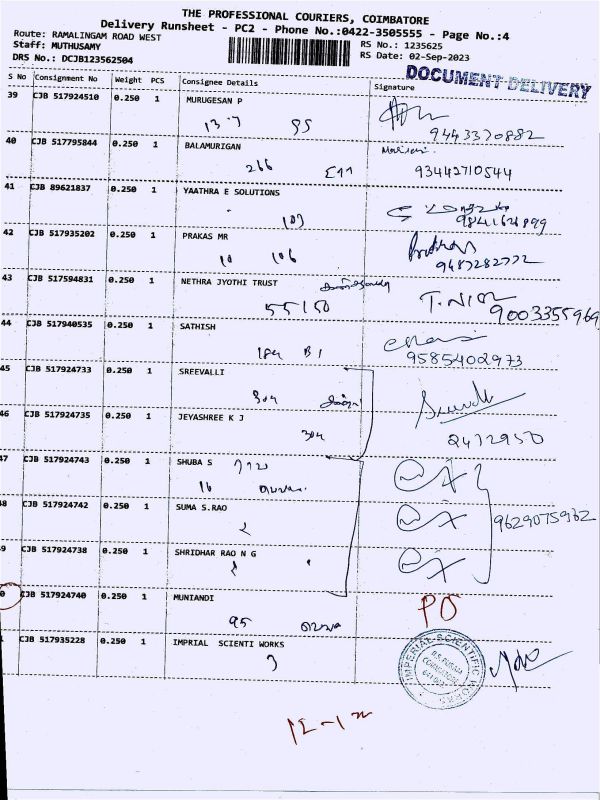 THE PROFESSIONAL COURIERS, COIMBATORE
Delivery Runsheet - PC2 - Phone No.:0422-3505555 - Page No.:4
Route: RAMALINGAM ROAD WEST
Staff: MUTHUSAMY
RS No.: 1235625
DRS No.: DCJB123562504
RS Date: 02-Sep-2023
DOCUMENT DELIVERY
S No Consignment No Weight PCS Consignee Details Signature
39 CJB 517924510 0.250 1 MURUGESAN P
9443370882
40 CJB 517795844 0.250 1 BALAMURIGAN
266
93442710544
41 CJB 89621837 0.250 1 YAATHRA E SOLUTIONS
103
42 CJB 517935202 0.250 1 PRAKAS MR
10 106
9487282772
43 CJB 517594831 0.250 1 NETHRA JYOTHI TRUST
55/50
9003355969
44 CJB 517940535 0.250 1 SATHISH
B1
9585402973
45 CJB 517924733 0.250 1 SREEVALLI
304
46 CJB 517924735 0.250 1 JEYASHREE K J
304
2472950
47 CJB 517924743 0.250 1 SHUBA S
16
48 CJB 517924742 0.250 1 SUMA S.RAO
9629075962
49 CJB 517924738 0.250 1 SHRIDHAR RAO N G
0 CJB 517924740 0.250 1 MUNIANDI
PO
95
CJB 517935228 0.250 1 IMPRIAL SCIENTI WORKS
3
IMPERIAL SCIENTIFIC WORKS